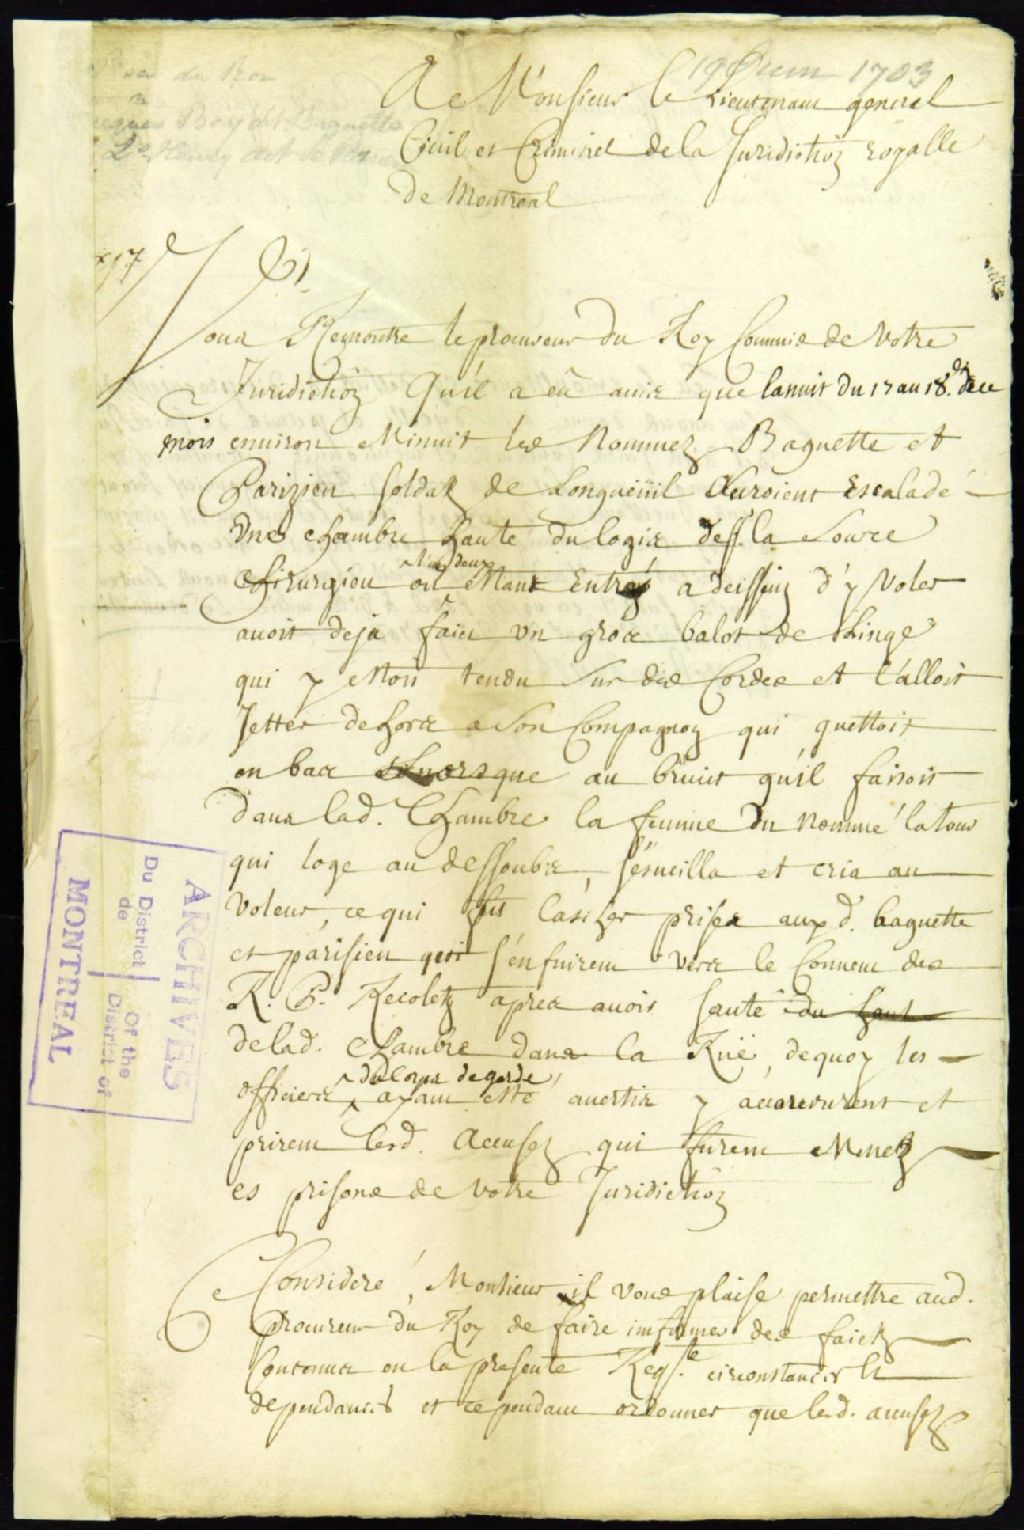 19 Xbre 1703
A Monsieur le Lieutenant general
Civil et Criminel de la Juridiction royalle
de Montreal
Vous Remontre le procureur du Roy Commis de Votre
Juridiction Qu'il a eû avis que la nuit du 17 au 18.e de ce
mois environ Minuit les Nommez Baguette et
Parizien soldatz de Longueüil Auroient Escaladé
Une chambre haute du logis de Sr. la Source
Chirurgien où l'un deux Estant Entré a dessein d'y Voler
avoit deja faict un gros balot de Linge
qui y Estoit tendu sur des Cordes et l'alloit
Jetter dehors a son Compagnon qui guettoit
en bas Lorsque au bruict qu'il faisoit
dans lad. Chambre la femme du Nommé latour
qui loge au dessoubs, s'eveilla et cria au
Voleur, ce qui fit lascher prise auxd. baguette
et parisien qui s'enfuirent vers le Convent des
R. P. Recoletz apres avoir sauté du haut
de lad. Chambre dans la Ruë, dequoy les
officiers du Corps de garde ayant esté avertis y accoururent et
prirent lesd. Accusez qui furent Menez
es prisons de Votre Juridiction
Consideré, Monsieur, il vous plaise permettre aud.
procureur du Roy de faire informer des faictz
Contenus en la presente Reqste. circonstances et
dependances et cependant ordonner que lesd. accusez
ARCHIVES
Du District | Of the
de | District of
MONTREAL